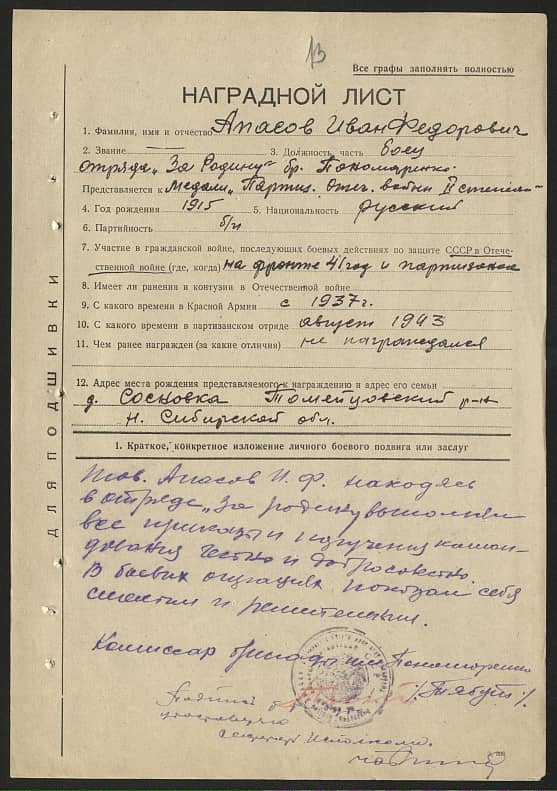 13
Все графы заполнять полностью
НАГРАДНОЙ ЛИСТ
1. Фамилия, имя и отчество Апасов Иван Федорович
2. Звание — 3. Должность, часть боец
отряда „За Родину" бр. Пономаренко
Представляется к медали „Партиз. отеч. войны II степени"
4. Год рождения 1915 5. Национальность русский
6. Партийность б/п
7. Участие в гражданской войне, последующих боевых действиях по защите СССР в Отече-
ственной войне (где, когда) на фронте 41 год и партизанск
8. Имеет ли ранения и контузии в Отечественной войне
9. С какого времени в Красной Армии с 1937 г.
10. С какого времени в партизанском отряде август 1943
11. Чем ранее награжден (за какие отличия) не награждался
12. Адрес места рождения представляемого к награждению и адрес его семьи
д. Сосновка р-н
Н. Сибирской обл.
1. Краткое, конкретное изложение личного боевого подвига или заслуг
Тов. Апасов И. Ф. находясь
в отряде „За родину" выполнял
все приказы и поручения коман-
дования честно и добросовестно.
В боевых операциях показал себя
смелым и решительным.
Комиссар бригады им Пономаренко
Подпись
удостоверяю
секретарь исполкома
ДЛЯ ПОДШИВКИ